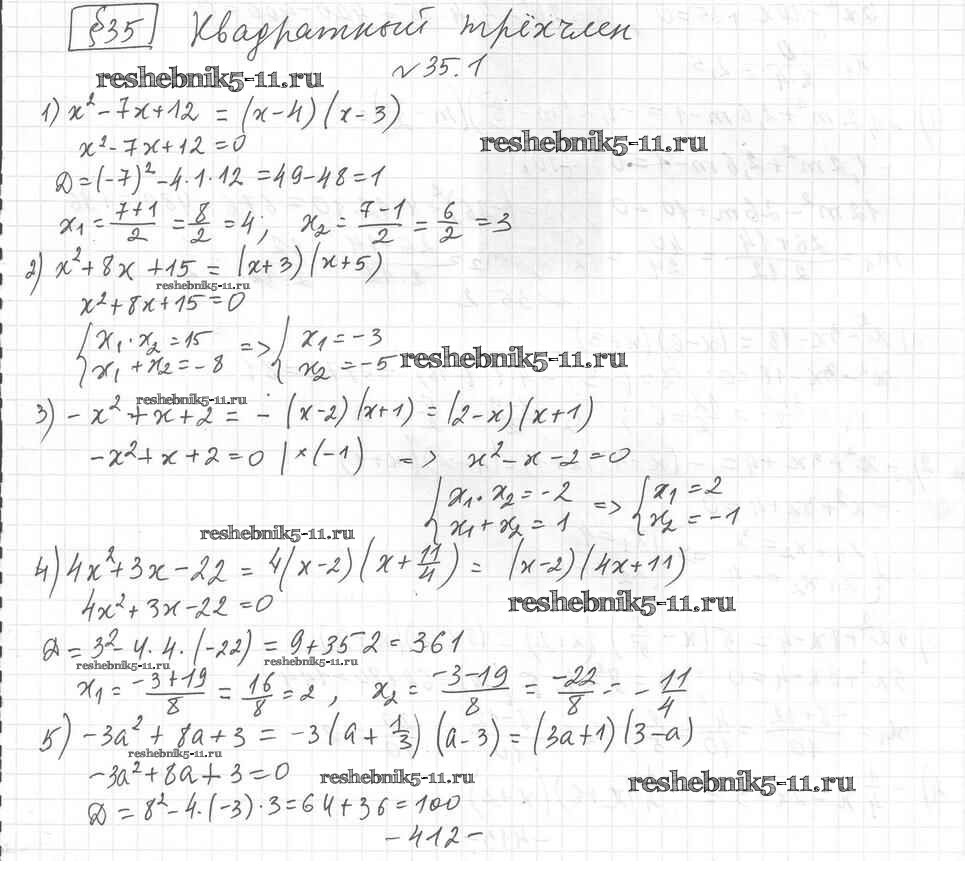 §35 Квадратный трёхчлен
reshebnik5-11.ru
№35.1
1) x² - 7x + 12 = (x-4)(x-3)
reshebnik5-11.ru
x² - 7x + 12 = 0
Д = (-7)² - 4·1·12 = 49 - 48 = 1
x₁ = (7+1)/2 = 8/2 = 4; x₂ = (7-1)/2 = 6/2 = 3
2) x² + 8x + 15 = (x+3)(x+5)
reshebnik5-11.ru
x² + 8x + 15 = 0
{ x₁·x₂ = 15 => { x₁ = -3
x₁ + x₂ = -8 x₂ = -5
reshebnik5-11.ru
reshebnik5-11.ru
3) -x² + x + 2 = -(x-2)(x+1) = (2-x)(x+1)
-x² + x + 2 = 0 |×(-1) => x² - x - 2 = 0
{ x₁·x₂ = -2 => { x₁ = 2
x₁ + x₂ = 1 x₂ = -1
reshebnik5-11.ru
4) 4x² + 3x - 22 = 4(x-2)(x + 11/4) = (x-2)(4x+11)
4x² + 3x - 22 = 0
reshebnik5-11.ru
Д = 3² - 4·4·(-22) = 9 + 352 = 361
reshebnik5-11.ru reshebnik5-11.ru
x₁ = (-3+19)/8 = 16/8 = 2, x₂ = (-3-19)/8 = -22/8 = -11/4
5) -3a² + 8a + 3 = -3(a + 1/3)(a-3) = (3a+1)(3-a)
reshebnik5-11.ru
-3a² + 8a + 3 = 0
reshebnik5-11.ru reshebnik5-11.ru
Д = 8² - 4·(-3)·3 = 64 + 36 = 100
-412-